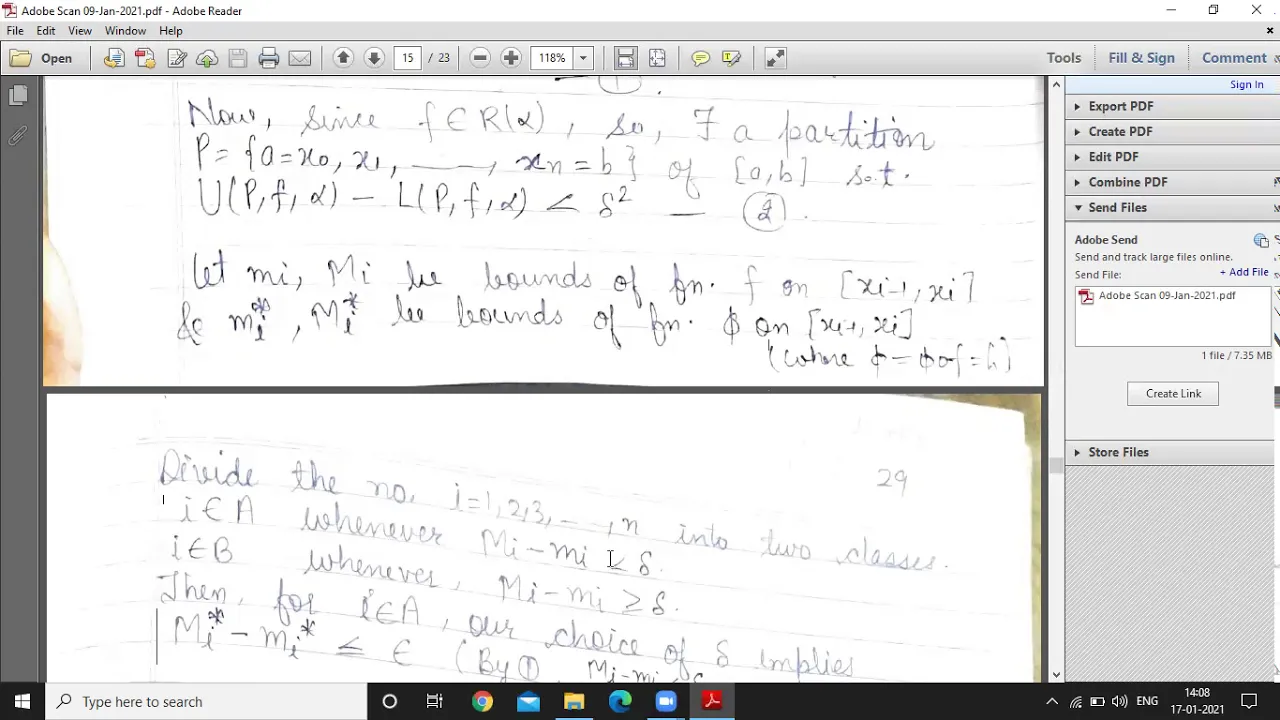 Adobe Scan 09-Jan-2021.pdf - Adobe Reader
File Edit View Window Help
Open 15 / 23 118% Tools Fill & Sign Comment
Sign In
Export PDF
Create PDF
Edit PDF
Combine PDF
Send Files
Adobe Send
Send and track large files online.
Send File: + Add File
Adobe Scan 09-Jan-2021.pdf
1 file / 7.35 MB
Create Link
Store Files
①.
Now, since f∈R(α), so, ∃ a partition
P = {a=x0, x1, ——, xn = b} of [a,b] s.t.
U(P,f,α) – L(P,f,α) < δ² — ②.
Let mi, Mi be bounds of fn. f on [xi-1, xi]
& mi*, Mi* be bounds of fn. ϕ on [xi-1, xi]
(where ϕ = ϕof = h)
29
Divide the no. i=1,2,3,---,n into two classes.
i∈A whenever Mi – mi < δ.
i∈B whenever, Mi – mi ≥ δ.
Then, for i∈A, our choice of δ implies
Mi* – mi* ≤ ϵ (By ① Mi-mi
Type here to search
ENG
14:08
17-01-2021